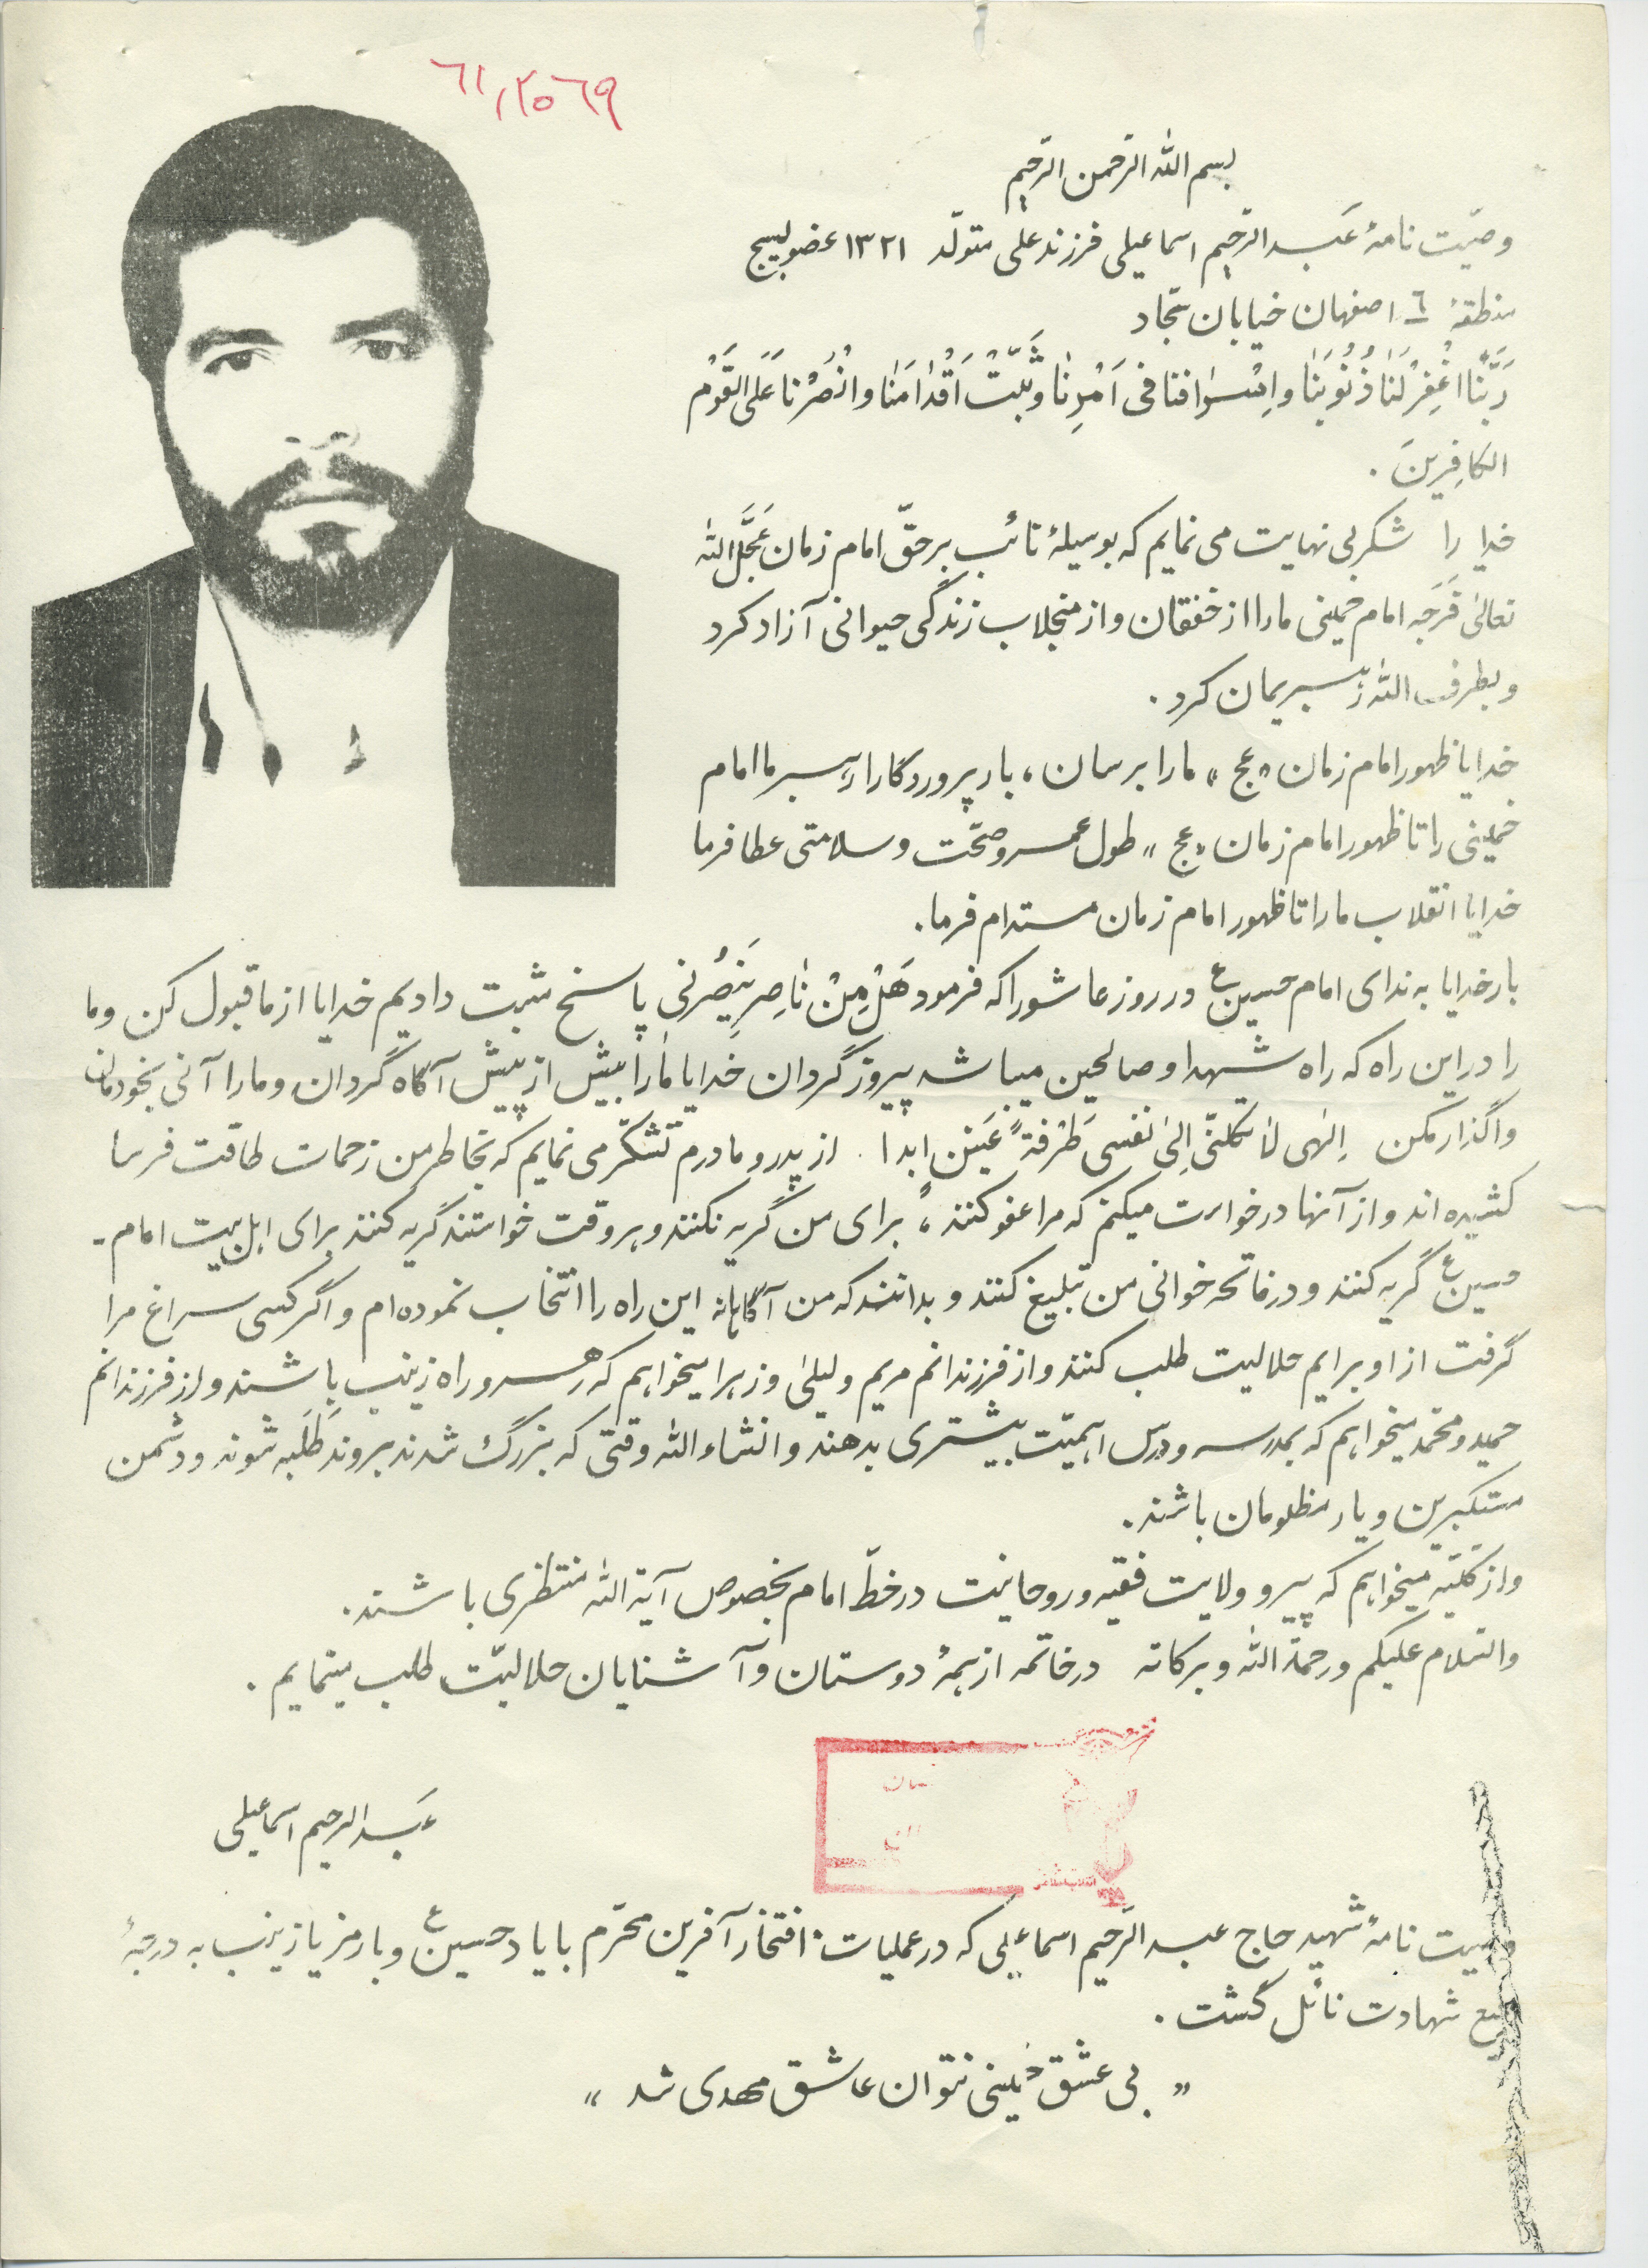 ٦١/٢٥٦٩
بسم الله الرّحمن الرّحیم
وصیّت نامهٔ عَبدالرّحیم اسماعیلی فرزند علی متولّد ۱۳۲۱ عضو بسیج
منطقهٔ ٦ اصفهان خیابان سجّاد
رَبَّنَا اغْفِرْ لَنَا ذُنُوبَنَا و اِسْرافنا فی اَمْرِنا وثَبِّتْ اَقْدامَنا وانْصُرْنا عَلَی القَوْم
الکافِرینَ .
خدا را شکر بی نهایت می نمایم که بوسیلهٔ نائب برحقّ امام زمان عَجَّلَ الله
تعالیٰ فَرَجَه امام خمینی ما را از خفقان و از منجلاب زندگی حیوانی آزاد کرد
و بطرف الله رهبریمان کرد .
خدایا ظهور امام زمان «عج» ما را برسان ، بار پروردگارا رهبر ما امام
خمینی را تا ظهور امام زمان «عج» طول عمر و صحّت و سلامتی عطا فرما
خدایا انقلاب ما را تا ظهور امام زمان مستدام فرما .
بار خدایا به ندای امام حسین ع در روز عاشورا که فرمود هَلْ مِنْ ناصِرٍ یَنصُرْنی پاسخ مثبت دادیم خدایا از ما قبول کن و ما
را در این راه که راه شهدا و صالحین میباشد پیروز گردان خدایا ما را بیش از پیش آگاه گردان و ما را آنی بخودمان
واگذار مکن اِلٰهی لا تکلنی اِلیٰ نفسی طَرْفةَ عَیْنٍ ابدا . از پدر و مادرم تشکّر می نمایم که بخاطر من زحمات طاقت فرسا
کشیده اند و از آنها درخواست میکنم که مرا عفو کنند ، برای من گریه نکنند و هر وقت خواستند گریه کنند برای اهل بیت امام -
حسین ع گریه کنند و در فاتحه خوانی من تبلیغ کنند و بدانند که من آگاهانه این راه را انتخاب نموده ام و اگر کسی سراغ مرا
گرفت از او برایم حلالیت طلب کنند و از فرزندانم مریم و لیلیٰ و زهرا میخواهم که رهرو راه زینب باشند و از فرزندانم
حمید و محمّد میخواهم که بمدرسه و درس اهمیّت بیشتری بدهند و انشاء الله وقتی که بزرگ شدند بروند طَلَبه شوند و دشمن
مستکبرین و یار مظلومان باشند .
و از کلیّه میخواهم که پیرو ولایت فقیه و روحانیت در خطّ امام بخصوص آیة الله منتظری باشند .
والسّلام علیکم و رحمة الله و برکاته در خاتمه از همهٔ دوستان و آشنایان حلالیّت طلب مینمایم .
عَبدالرحیم اسماعیلی
وصیت نامهٔ شهید حاج عبدالرّحیم اسماعیلی که در عملیات افتخار آفرین محرّم با یاد حسین ع و با رمز یا زینب به درجهٔ
رفیع شهادت نائل گشت .
«بی عشق خمینی نتوان عاشق مهدی شد»